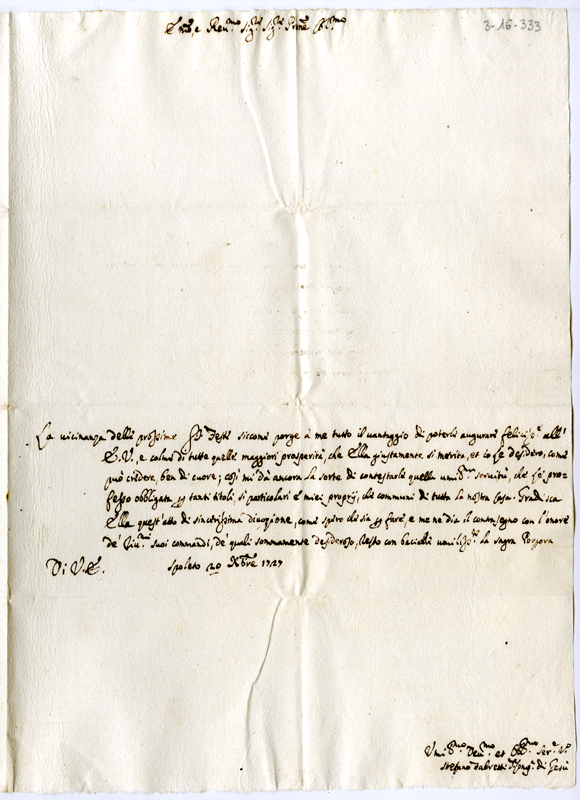 Em.o, e Reu.mo Sig.r Sig.r Prōne Col.mo
3-16-333
La uicinanza delle prossime S.te Feste siccome porge à me tutto il uantaggio di poterle augurare felicis.e all'
E.V., e colme di tutte quelle maggiori prosperità, che Ella giustamente si merita, et io le desidero, come
può credere, ben di cuore; così mi dà ancora la sorte di contestarle quella umil.ma seruitù, che le pro-
fesso obbligata p tanti titoli, si particolari e miei proprij, che communi di tutta la nostra Casa. Gradisca
Ella quest'atto di sincerissima diuozione, come spero che sia p fare, e me ne dia il contrasegno con l'onore
de' riu.mi suoi commandi, de' quali sommamente desideroso, resto con baciarle umilis.te la sagra Porpora
Di V.E. Spoleto 20 Xbre 1727
Umil.mo Deu.mo et Obb.mo Ser.e V.o
Stefano della Comp.a di Gesù